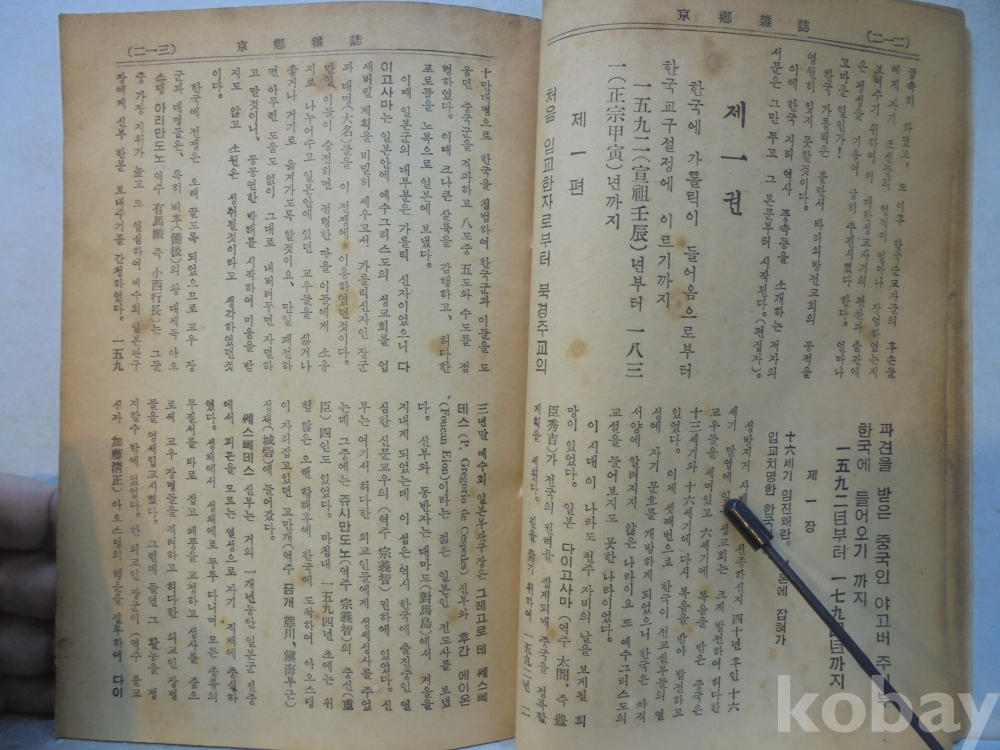 京鄕雜誌
(二—二)
영원히 잊지 못할것이다.
이에 한국 지리 역사 풍속등을 소개하는 저자의
서문은 그만 두고 그 본문부터 시작된다. (편집자)。
제一권
한국에 가톨릭이 들어옴으로부터
한국교구설정에 이르기까지
一五九二(宣祖壬辰)년부터 一八三
一(正宗甲寅)년까지
제一편
처음 입교한자로부터 북경주교의
파견을 받은 중국인 야고버 주
한국에 들어오기 까지
一五九二년부터 一七九四년까지
제一장
十六세기 임진왜란。
입교치명한 한국
세기 말엽에
교우들을 세며있고 六세기에 복음을 받은 중국은
十三세기와 十六세기에 다시 복음을 받아 발전하고
있었다。 이제 셋째번으로 한국이 전교신부들의 열
성에 자기 문호를 개방하게 되었으니 한국은 아직
서양에 알려지지 않은 나라이요 또 예수그리스도의
교설을 들어보지도 못한 나라이었다。
이시대이 나라도 천주 자비의 날을 보게될 희
망이 있었다。 일본 다이고사마(역주 太閤、즉 豊
臣秀吉)가 전국의 권력을 잡게되매 중국을 정복할
京鄕雜誌
(二—三)
十만대명으로 한국을 침범하여 한국군과 이들을 도
울던 중국군을 격파하고 八도중 五도와 수도를 점
령하였다。 이때 크나큰 살륙을 감행하고、 허다한
포로들을 노복으로 일본에 보냈다。
이때 일본군의 대부분은 가톨릭 신자이었으니 다
이고사마는 일본안에 예수그리스도의 성교회를 업
새버릴 계획을 비밀히 세우고서、 가톨릭신자인 장군
과 대명(大名)들을 이 전쟁에 이용하였던것이다。
만일 이들이 승전하면、 정령한 땅을 이들에게 소유
지로 나누어주고 일본안에 있던 교우들을 싫거나
좋거나 거기로 옮겨가도록 할것이요、 만일 패전하
면 아무런 도움도 없이 그대로 내버려두면 자멸하
고 말것이니、 공공연한 박해를 시작하여 미움을 받
지도 않고 소원은 성취될것이라고 생각하였던것
한국에 전쟁은 오래 끌도록 되었으므로 교우 장
군과 대명들은、 특히 비후(備後)의 왕 대제독 아오
스딩 아리만도노(역주 有馬殿 즉 小西行長)는 그들
중 가장 지위가 높고 또 열심하여 예수회 일본관구
장에게 신부 한분 보내주기를 간청하였다。 一五九
三년말 예수회 일본부관구장은 그레고로 데 쎄스뻬
데스(P. Gregorio de Cespedes) 신부와 후간 에이온
(Foucan Eion)이라는 젊은 일본인 전도사를 보냈
다。 신부와 동반자는 대마도(對馬島)에서 겨울을
지내게 되었는데 이 섬은 역시 한국에 출진중인 열
심한 신문교우의 (역주 宗義智) 편하에 있었다。 신
부는 여기서 허다한 외교인들에게 성세성사를 주었
는데 그중에는 쥬시만도노(역주 宗義智의 중신(重
臣) 四인도 있었다。 마침내 一五九四년 초에는 위
험 많은 오랜 항해후에 한국에 도착하여 아오스딩
이 자리잡고있던 고만개(역주 곰개 熊川、 鎭海부근)
성채(城砦)에 들어갔다。
쎄스뻬데스 신부는 거의 一개년동안 일본군 진중
에서 피곤을 모르는 열성으로 자기 직책에 충실하
였다。 성채에서 성채에로 두루 다니며、 모든 종류의
무질서를 바로 잡고 폐풍을 교정하고 성사를 줌으
로써 교우 장병들을 격려하고 허다한 외교인 장병
들을 영세입교시켰다。 그런데 돌연 그 활동을 정
지할수 밖에 없었다。 한 외교인 장군이 (역주 불교
신자 加藤淸正) 아오스딩의 영웅을 질투하여 다이
kobay